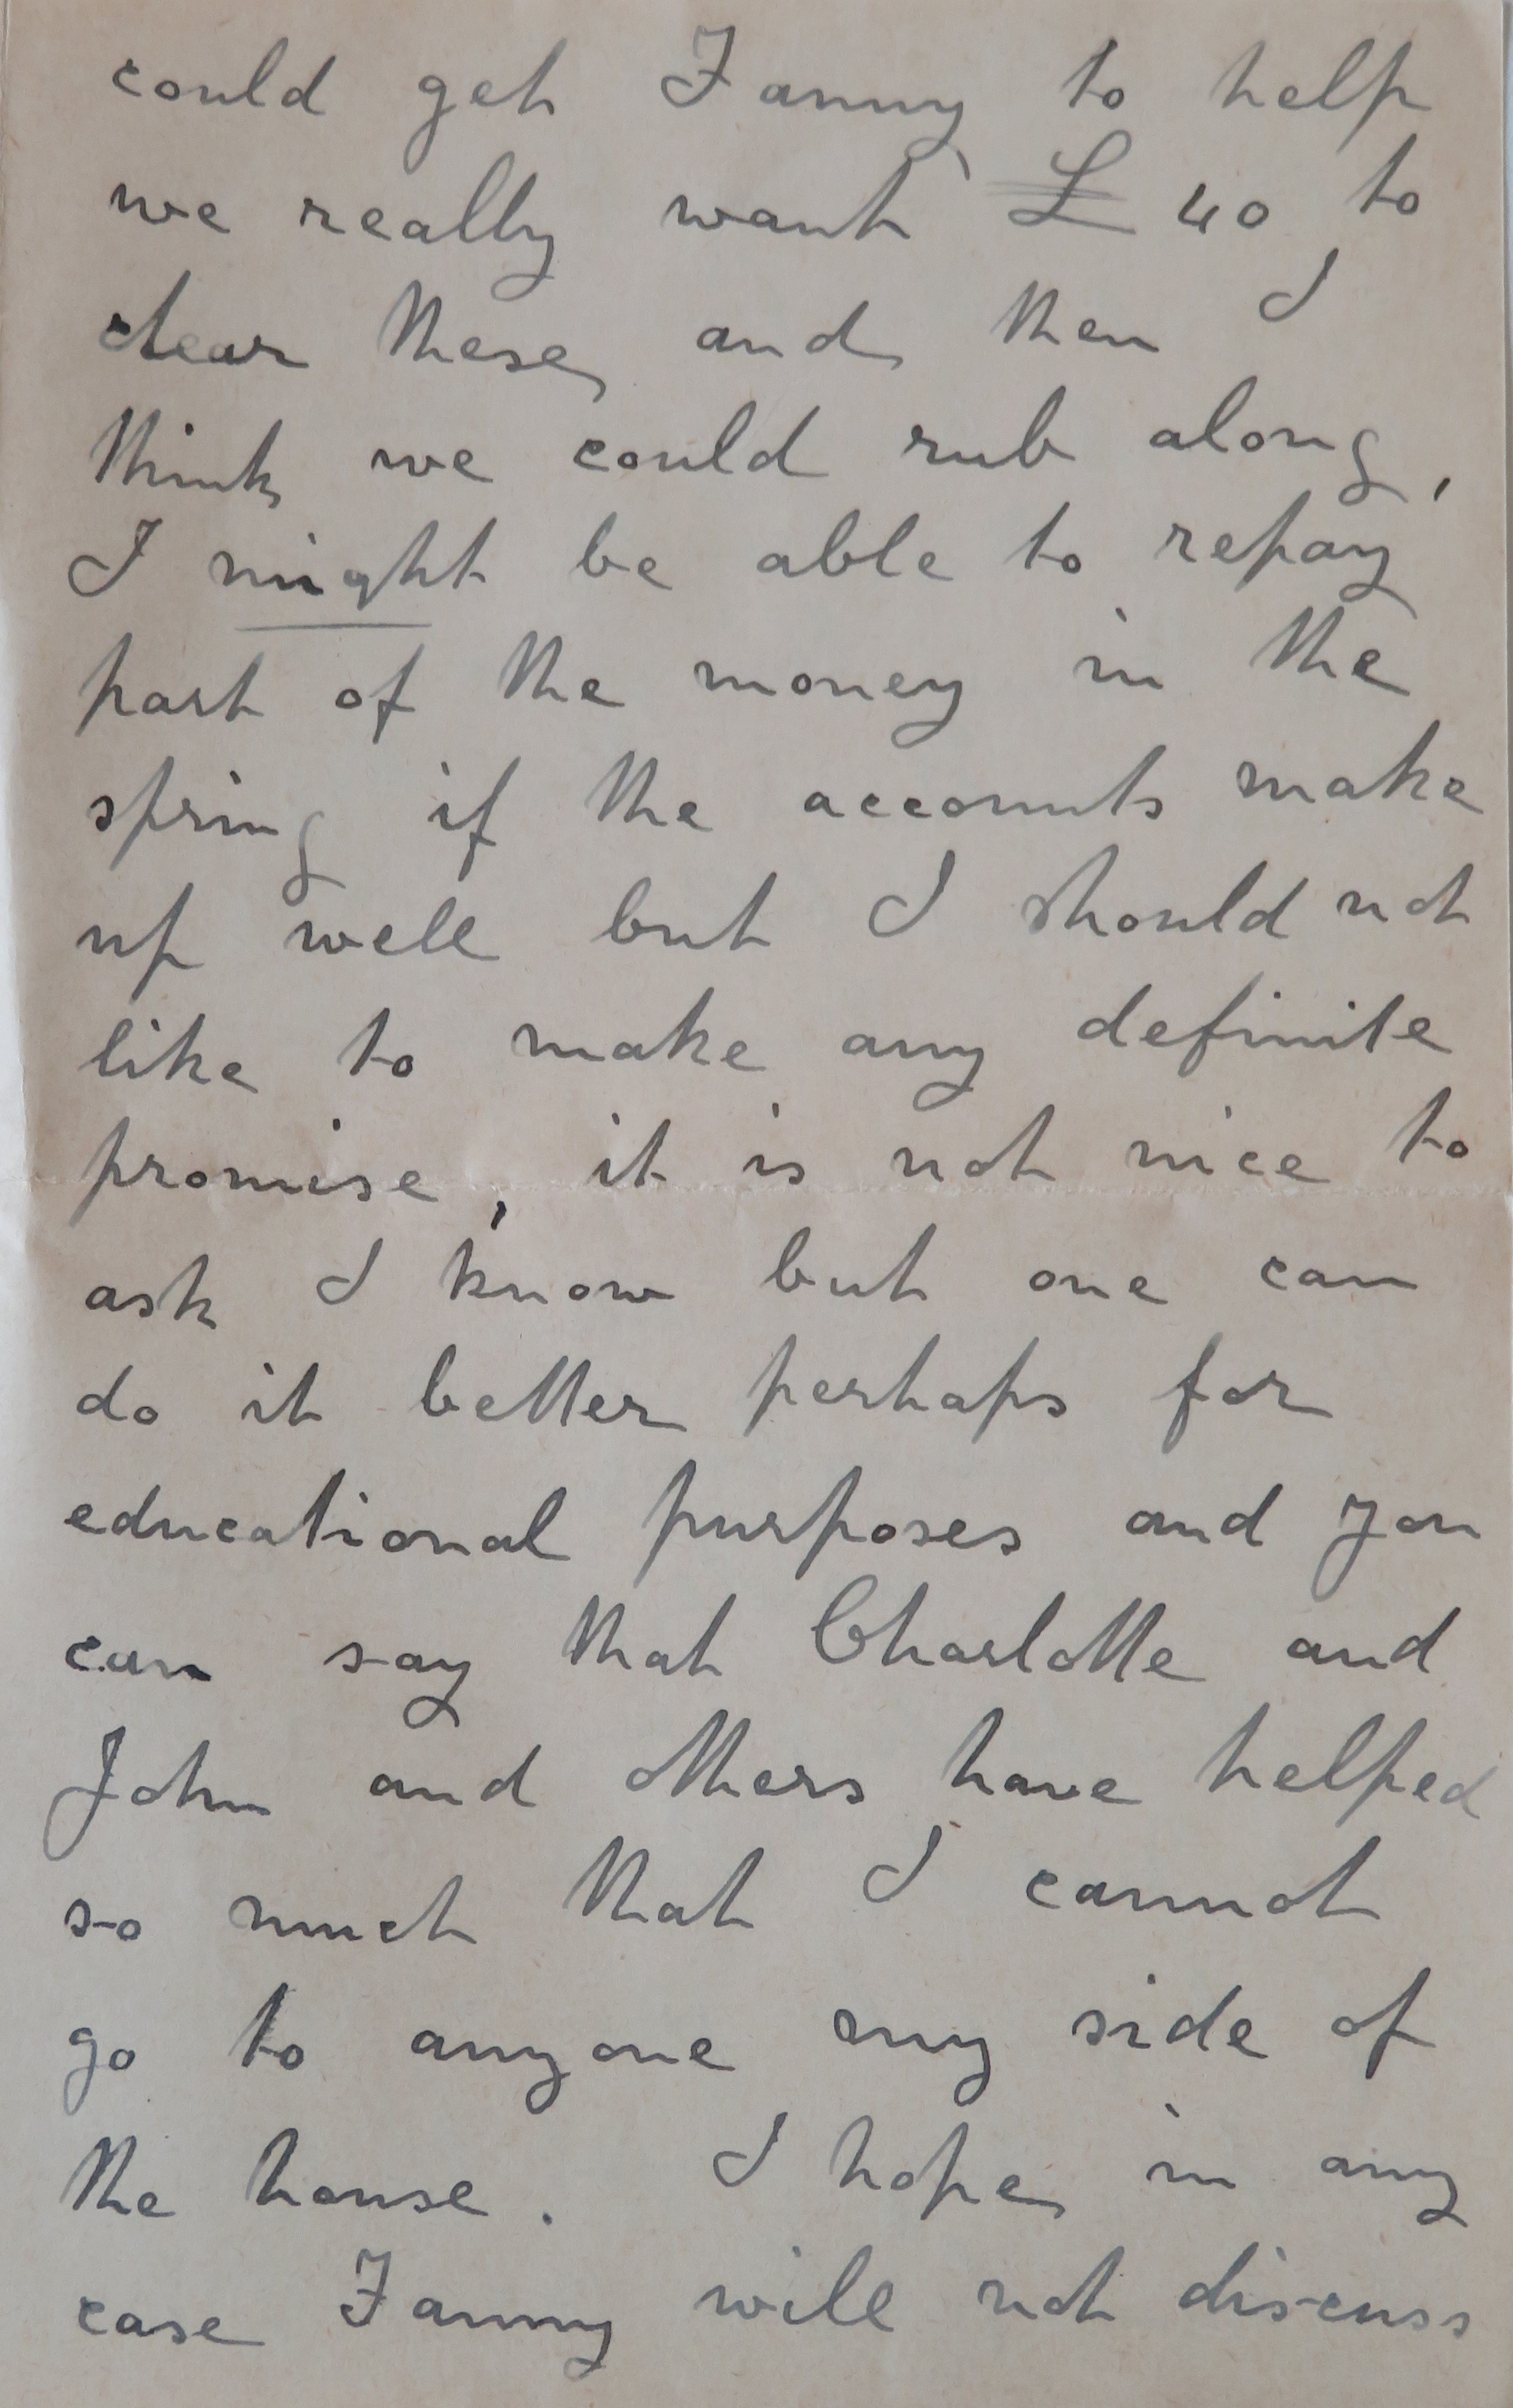 could get Fanny to help
we really want £40 to
clear these, and then I
think we could rub along,
I might be able to repay
part of the money in the
spring if the accounts make
up well but I should not
like to make any definite
promise, it is not nice to
ask I know but one can
do it better perhaps for
educational purposes and you
can say that Charlotte and
John and others have helped
so much that I cannot
go to anyone my side of
the house. I hope in any
case Fanny will not discuss